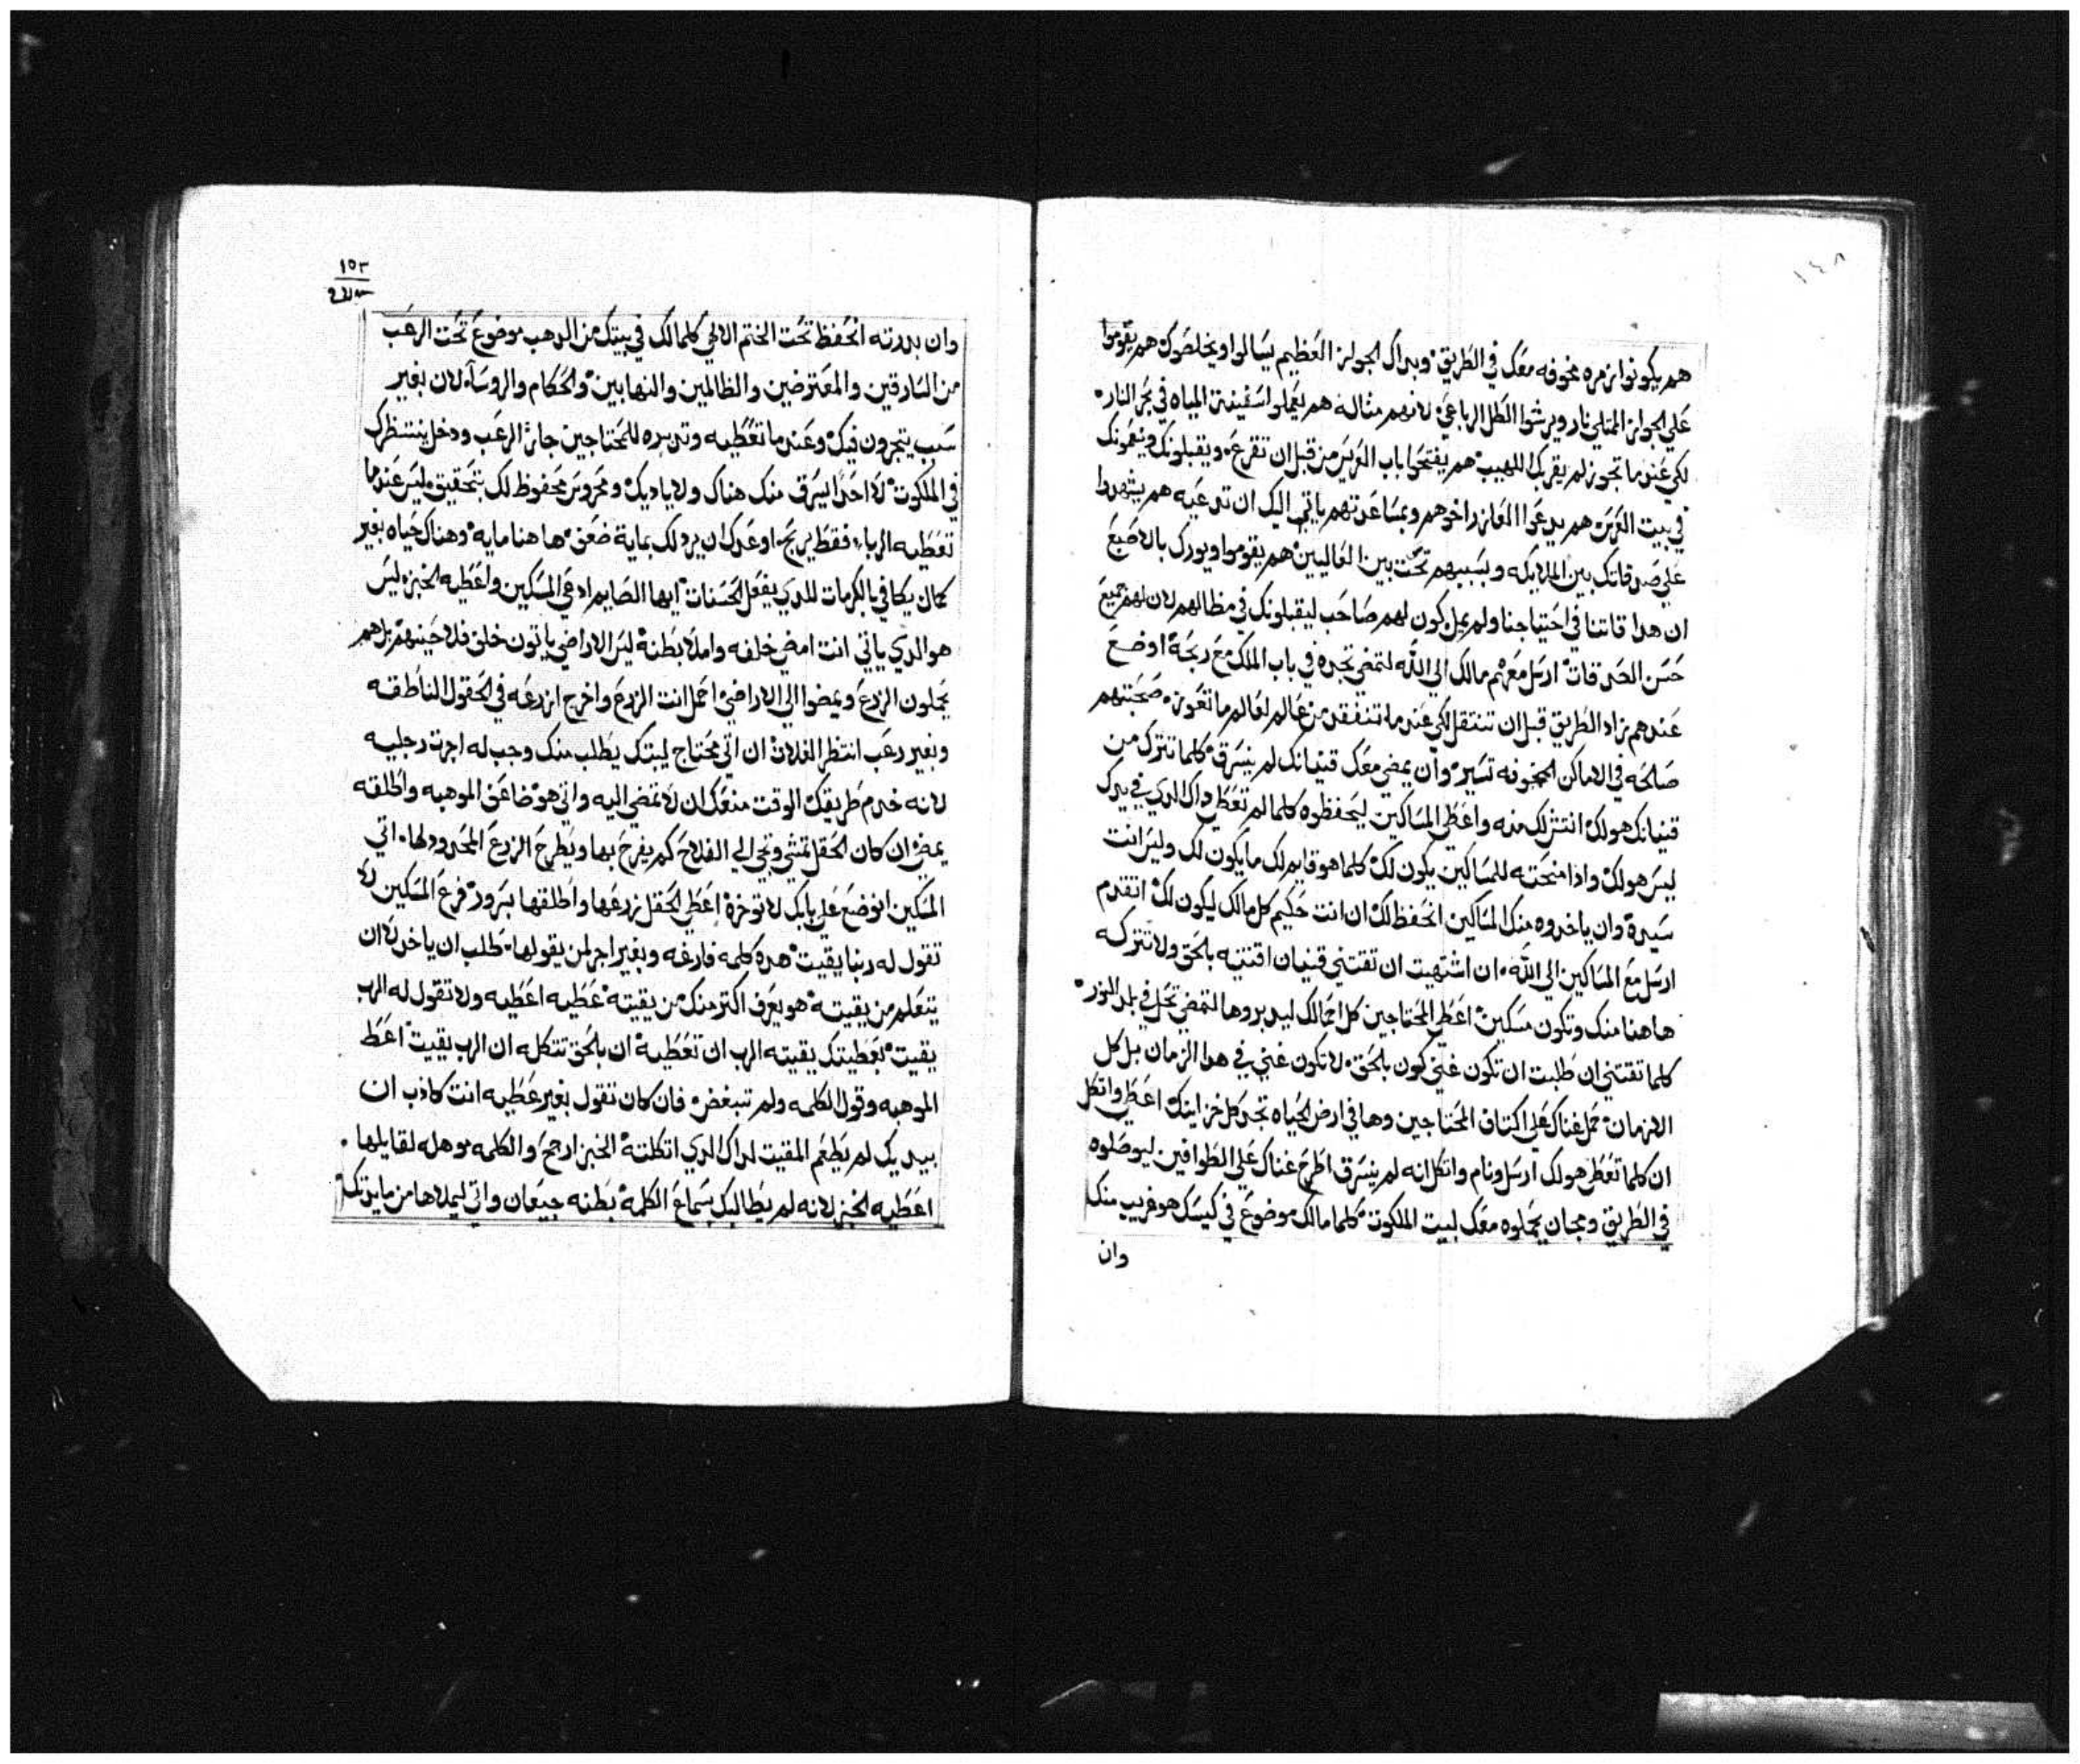 ١٤٨
هم يكونوا زمره مخوفه معك في الطريق وبداك الجواز العظيم يسالوا ويخلصوك هم يقوموا
علي الجواز الممتلي نار ويرشوا الطل الرباعي لانهم مثاله هم يعملوا سفينة المياه في بحر النار
لكي عندما تجوز لم يقربك اللهيب هم يفتحوا باب العرس من قبل ان تقرعه ويقبلونك وينعمونك
في بيت العرس هم يدعوا العازر اخوهم وبمساعدتهم ياتي اليك ان تدعيه هم يشهدوا
علي صدقاتك بين الملايكه وبسببهم تحت بين العاليين هم يقوموا ويورك بالاصبع
ان هدا قاتنا في احتياجنا ولم يمل كون لهم صاحب ليقبلونك في مظالهم لان لهم جميع
حسن الصدقات ارسل معهم مالك الي الله لتمضي تجده في باب الملك مع ربحه اوضع
عندهم زاد الطريق قبل ان تنتقل لكي عندما تنفقد من عالم لعالم ما تعوزه صحبتهم
صالحه في الاماكن المخوفه تسير وان يمضي معك قنيانك لم ينسرق كلما تترك من
قنيانك هو لك انتشلك منه واعطي المساكين ليحفظوه كلما لم تعطي داك الدي في يدك
ليس هو لك وادا منحته للمساكين يكون لك كلما هو قايم لك ما يكون لك وليس انت
سيده وان ياخدوه منك المساكين انحفظ لك ان انت حكيم كل مالك ليكون لك اتقدم
ارسل مع المساكين الي الله ان اشتهيت ان تقتني قنيان اقتنيه بالحق ولا تتركه
هاهنا منك وتكون مسكين اعطي المحتاجين كل احمالك ليدبروها لتمضي تحل في بلد النور
كلما تقتني ان طلبت ان تكون غني كون بالحق لا تكون غني في هدا الزمان بل كل
الازمان حمل غناك علي اكتاف المحتاجين وها في ارض الحياه تجد كل خزاينك اعطي واتكل
ان كلما تعطي هو لك ارسل ونام واتكل انه لم ينسرق اطرح غناك علي الطوافين ليوصلوه
في الطريق ومجان يحملوه معك لبيت الملكوت كلما مالك موضوع في كيسك هو غريب منك
وان
١٥٣
وان بددته انحفظ تحت الختم الالهي كلما لك في بيتك من الدهب موضوع تحت الرعب
من السارقين والمعترضين والظالمين والنهابين والحكام والروساء لان بغير
سبب يتجرون فيك وعندما تعطيه وتدبره للمحتاجين جاز الرعب ودخل ينتظرك
في الملكوت لا احدا يسرق منك هناك ولا ياديك ومحروس محفوظ لك بتحقيق ليس عندما
تعطيه الرباء فقط يربح اوعدك ان يرد لك بماية ضعف هاهنا مايه وهناك حياه بغير
كمال يكافي بالكرمات للدي يفعل الحسنات ايها الصايم ادعي المسكين واعطيه الخبز ليس
هو الدي ياتي انت امضي خلفه واملا بطنه ليس الاراضي ياتون خلف فلاحينهم بل هم
يحملون الزرع ويمضوا الي الاراضي احمل انت الزرع واخرج ازرعه في الحقول الناطقه
وبغير رعب انتظر الغلات ان اتي محتاج لبيتك يطلب منك وجب له اجرت رجليه
لانه خدم طريقك الوقت منعك ان لا تمضي اليه واتي هو ضاعف الموهبه واطلقه
يمضي ان كان الحقل تمشي وتجي الي الفلاح كم يفرح بها ويطرح الزرع المحدود لها اتي
المسكين انوضع علي بابك لا توخره اعطي الحقل زرعها واطلقها بسرور فرع المسكين لا
تقول له ربنا يقيت هده كلمه فارغه وبغير اجر لمن يقولها طلب ان ياخد لا ان
يتعلم من يقيته هو يعرف اكتر منك من يقيته عطيه اعطيه ولا تقول له الرب
يقيت بعطيتك يقيته الرب ان تعطيه ان بالحق تتكل ان الرب يقيت اعط
الموهبه وقول الكلمه ولم تنبغض فان كان تقول بغير عطيه انت كادب ان
بيديك لم يطعم المقيت لداك الدي اتكلته الخبز ارجح والكلمه موهله لقايلها
اعطيه الخبز لانه لم يطالبك بسماع الكلمه بطنه جيعان واتي ليملاها من مايدتك